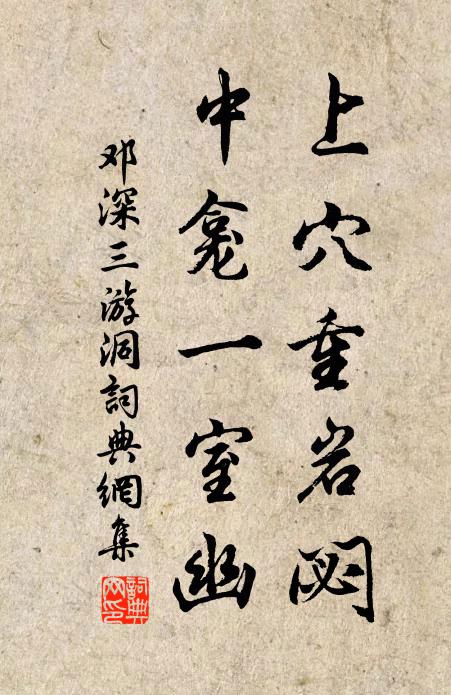 上穴重岩閟
中龛一室幽
邓深三游洞詞典網集
詞典网印